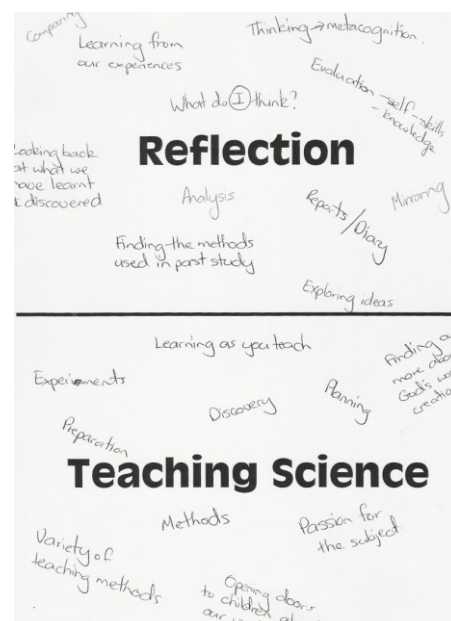 Comparing
Learning from
our experiences
Thinking → metacognition.
Evaluation - self - skills
- knowledge
What do I think?
Reflection
Looking back
at what we
have learnt
& discovered
Analysis
Reports / Diary
Mirroring
Finding the methods
used in past study
Exploring ideas
Learning as you teach
Experiments
Finding
more
God's
creation
Discovery
Planning
Preparation
Teaching Science
Methods
Passion for
the subject
Variety of
teaching methods
Opening doors
to children
our